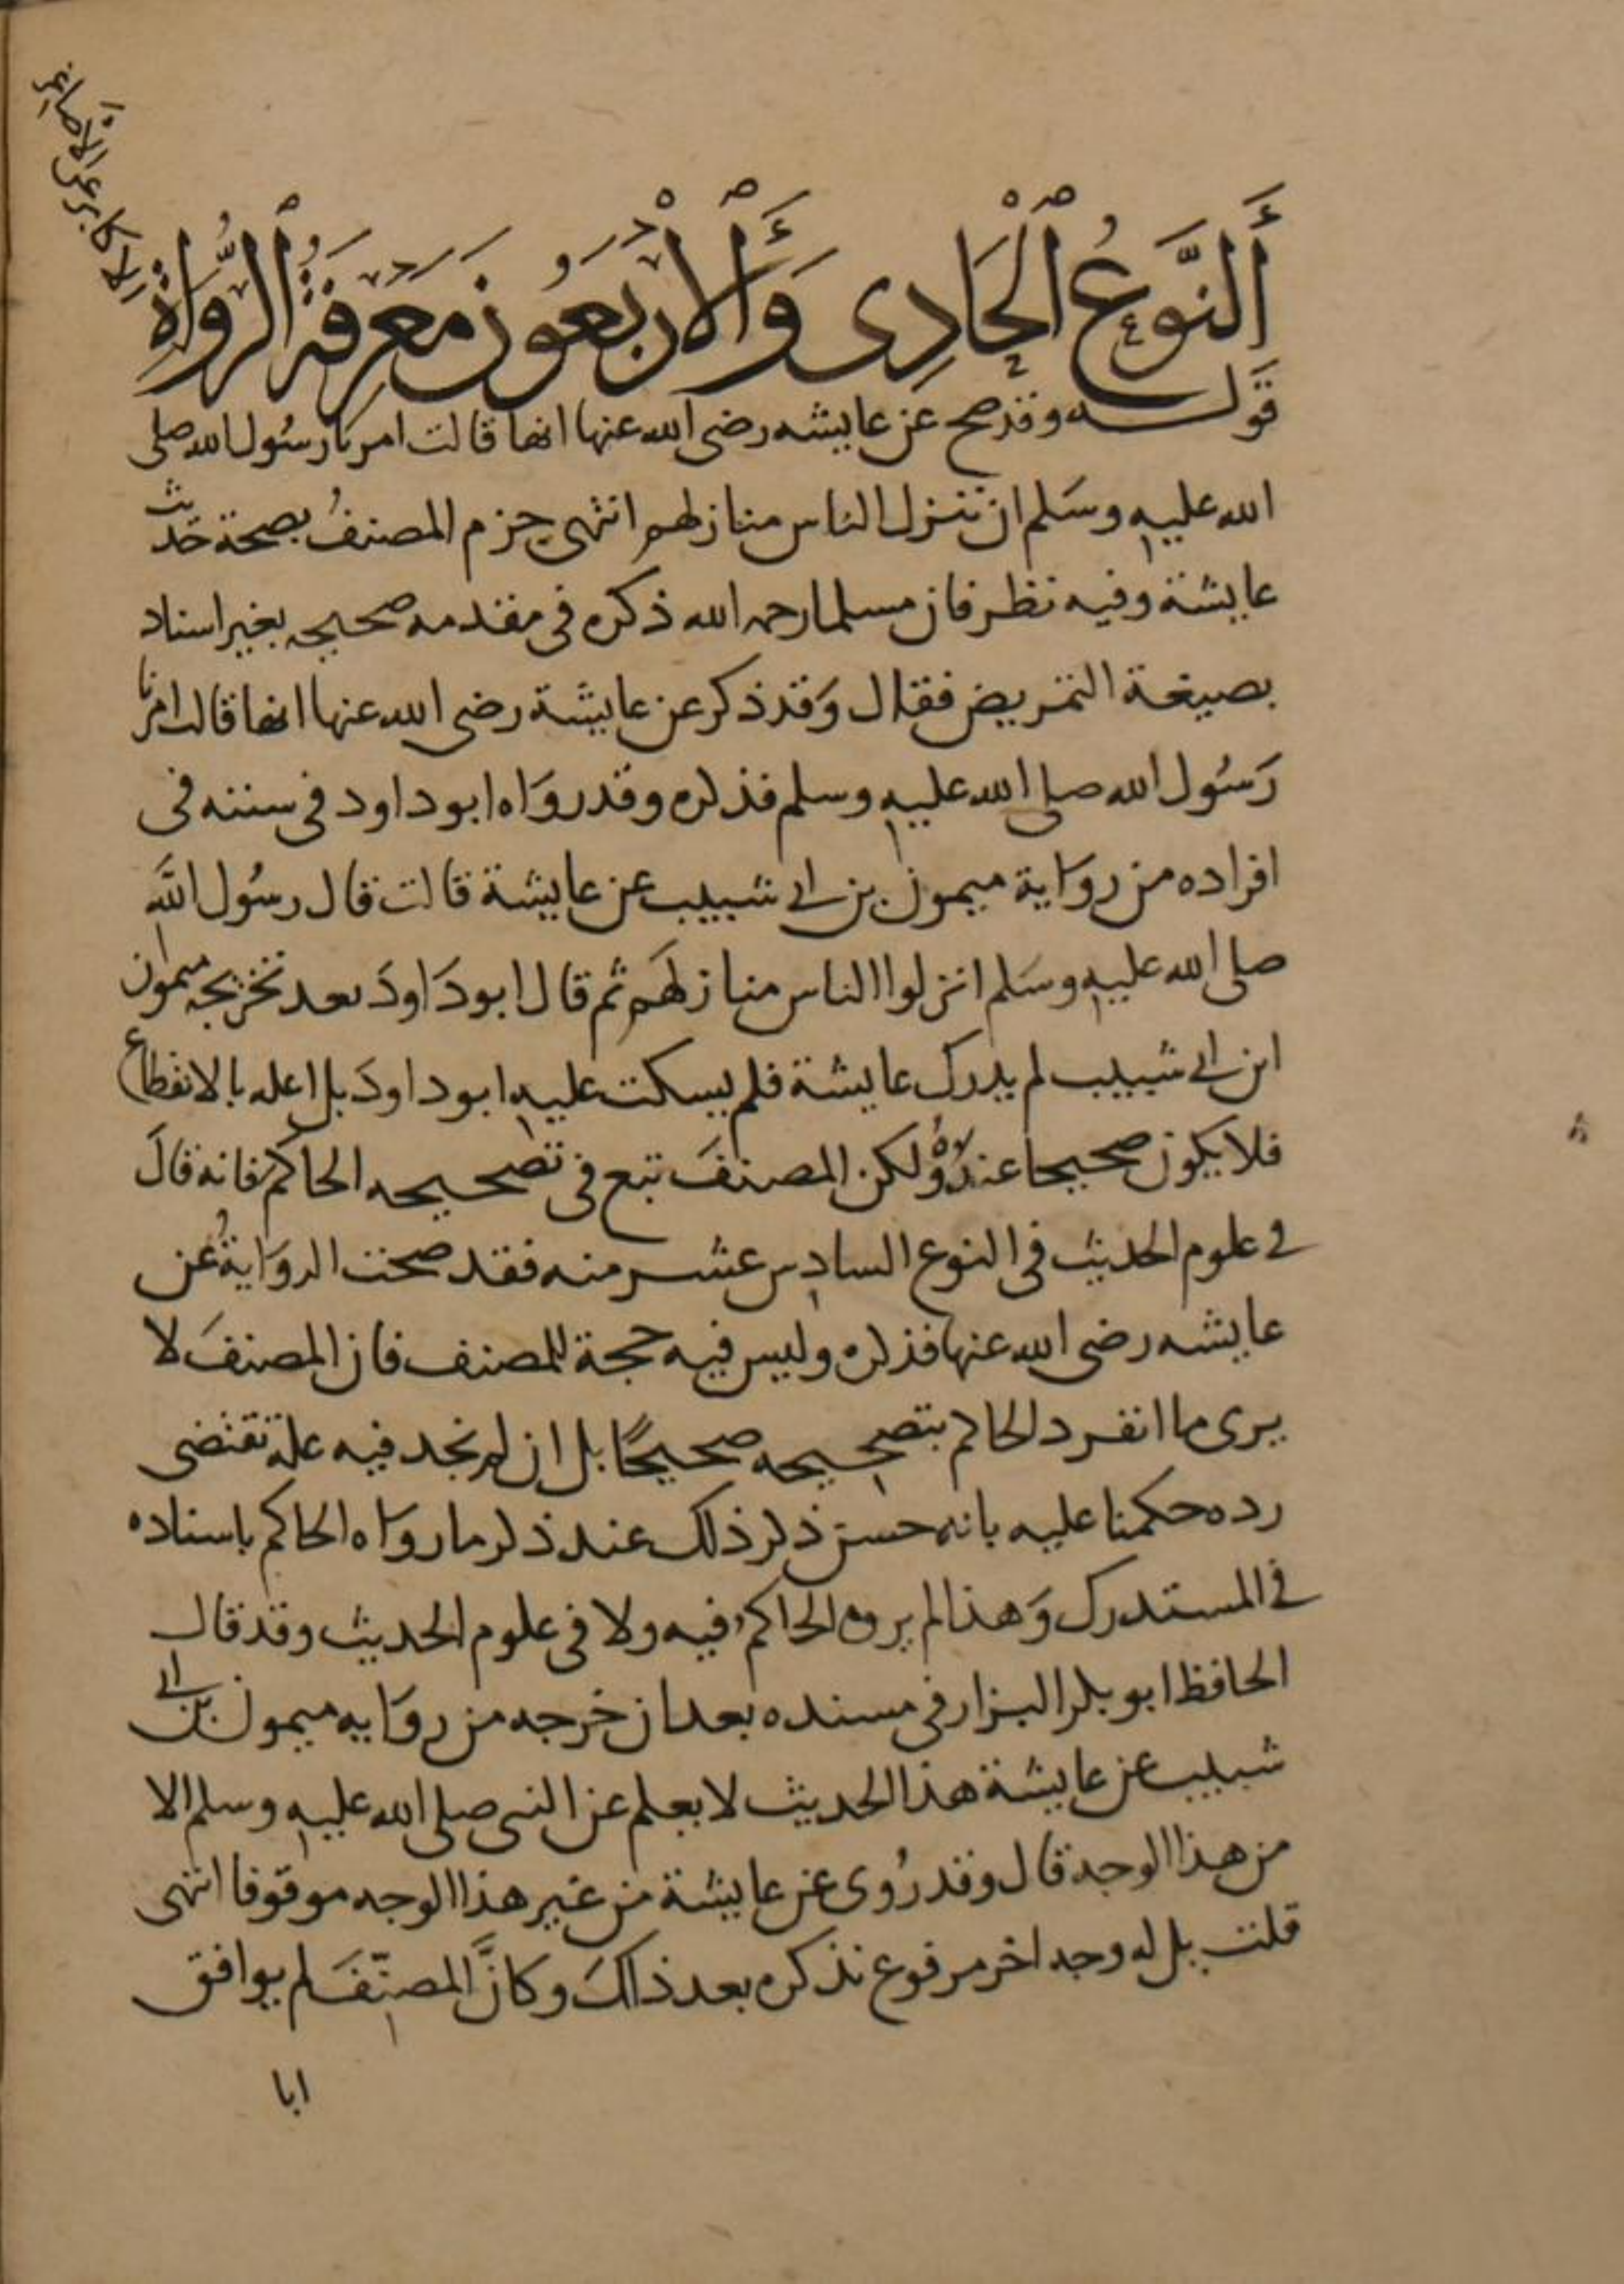 أَلنَّوعُ ٱلْحَادِى وَٱلْأَرْبَعُونَ مَعْرِفَةُ ٱلرُّوَاةِ
الاكابر عن الاصاغر
قوله وقد صح عن عايشه رضى الله عنها انها قالت امرنا رسُول الله صلى
الله عليه وسَلم ان ننزل الناس منازلهم انتهى جزم المصنفُ بصحة حَديث
عايشة وفيه نظر فان مسلما رحمه الله ذكره فى مقدمه صحيحه بغير اسناد
بصيغة التمريض فقال وَقد ذكر عن عايشة رضى الله عنها انها قالت امرنا
رَسُول الله صلى الله عليه وسلم فذكره وقد روَاه ابو داود فى سننه فى
افراده من روَاية ميمون بن ابى شبيب عن عايشة قالت قال رسُول اللَّه
صلى الله عليه وسَلم انزلوا الناس منازلهَم ثم قال ابو دَاودَ بعد تخريجه ميمون
ابن ابى شبيب لم يدرك عايشة فلم يسكت عليه ابو داودَ بل اعله بالانقطاع
فلا يكون صحيحا عندهُ ولكن المصنفَ تبع فى تصحيحه الحاكم فانه قالَ
فى علوم الحديث فى النوع السادس عشر منه فقد صحت الروَايةُ عن
عايشه رضى الله عنها فذكره وليس فيه حجة للمصنف فان المصنفَ لا
يرى ما انفرد الحاكم بتصحيحه صحيحًا بل ان لم نجد فيه علة تقتضى
رده حكمنا عليه بانه حسن ذكر ذلك عند ذكر ما روَاه الحاكم باسناده
فى المستدرك وَهذا لم يروه الحاكم فيه ولا فى علوم الحديث وقد قال
الحافظ ابو بكر البزار فى مسنده بعد ان خرجه من روَايه ميمون بن ابى
شبيب عن عايشة هذا الحديث لا يعلم عن النبى صلى الله عليه وسلم الا
من هذا الوجه قال وقد رُوى عن عايشة من غير هذا الوجه موقوفا انتهى
قلت بل له وجه اخر مرفوع نذكره بعد ذلكَ وكانَّ المصنّفَ لم يوافق
ابا